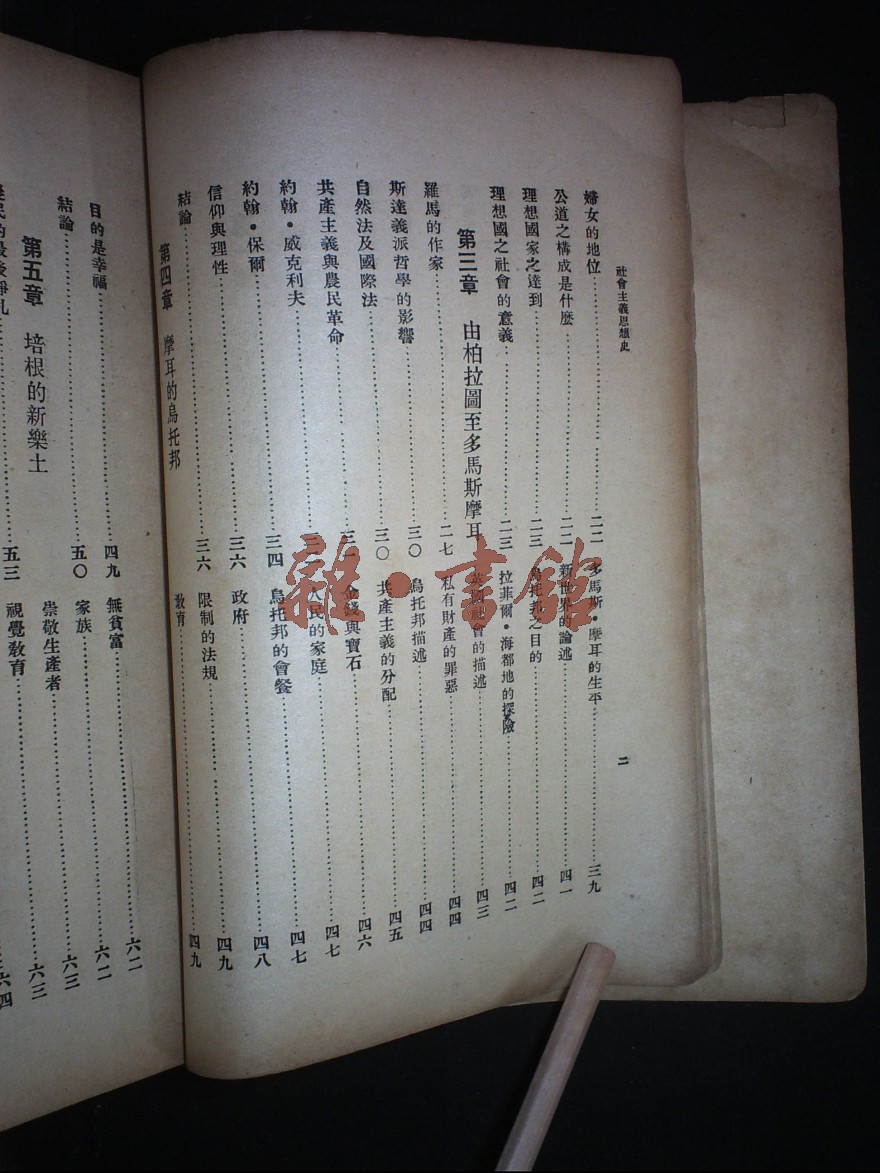 社會主義思想史
二
婦女的地位……二二
公道之構成是什麼……二二
理想國家之達到……二三
理想國之社會的意義……二三
第三章 由柏拉圖至多馬斯摩耳
羅馬的作家……二七
斯達義派哲學的影響……三〇
自然法及國際法……三〇
共產主義與農民革命……三一
約翰•威克利夫……
約翰•保爾……三四
信仰與理性……三六
結論……三六
第四章 摩耳的烏托邦
多馬斯•摩耳的生平……三九
新世界的論述……四一
烏托邦之目的……四二
拉菲爾•海都地的探險……四二
英國社會的描述……四三
私有財產的罪惡……四四
烏托邦描述……四四
共產主義的分配……四五
金錢與寶石……四六
人民的家庭……四七
烏托邦的會餐……四七
政府……四八
限制的法規……四九
教育……四九
目的是幸福……四九
結論……五〇
第五章 培根的新樂土
民的最後掙扎……五三
無貧富……六二
家族……六二
崇敬生產者……六三
視覺教育……六三
六四
雜•書館